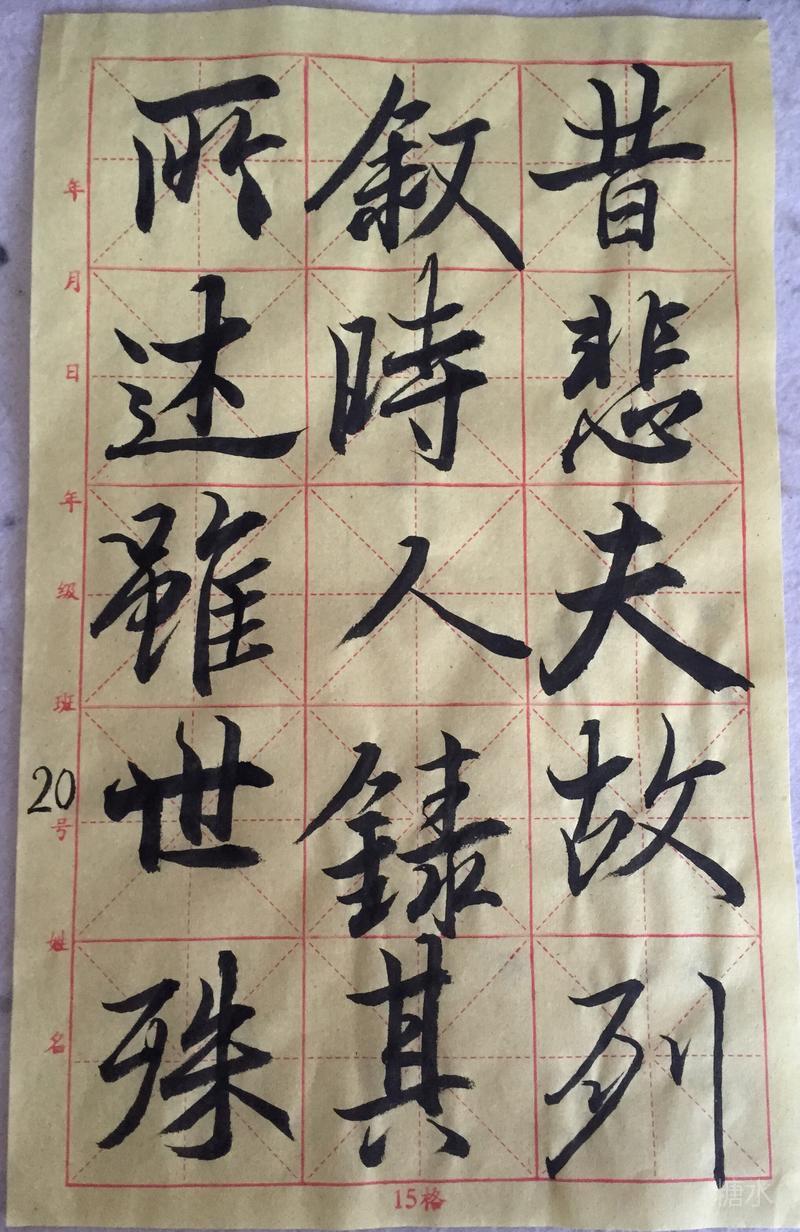 昔悲夫故列
叙時人録其
所述雖世殊
年月日
年级班
20号
姓名
15格
糖水